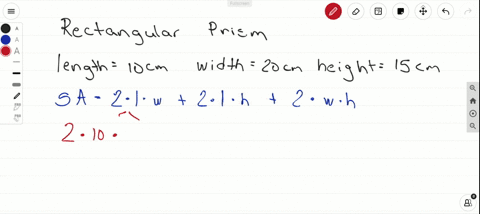 Rectangular Prism
length = 10cm width = 20cm height = 15cm
SA = 2 · l · w + 2 · l · h + 2 · w · h
2 · 10 ·